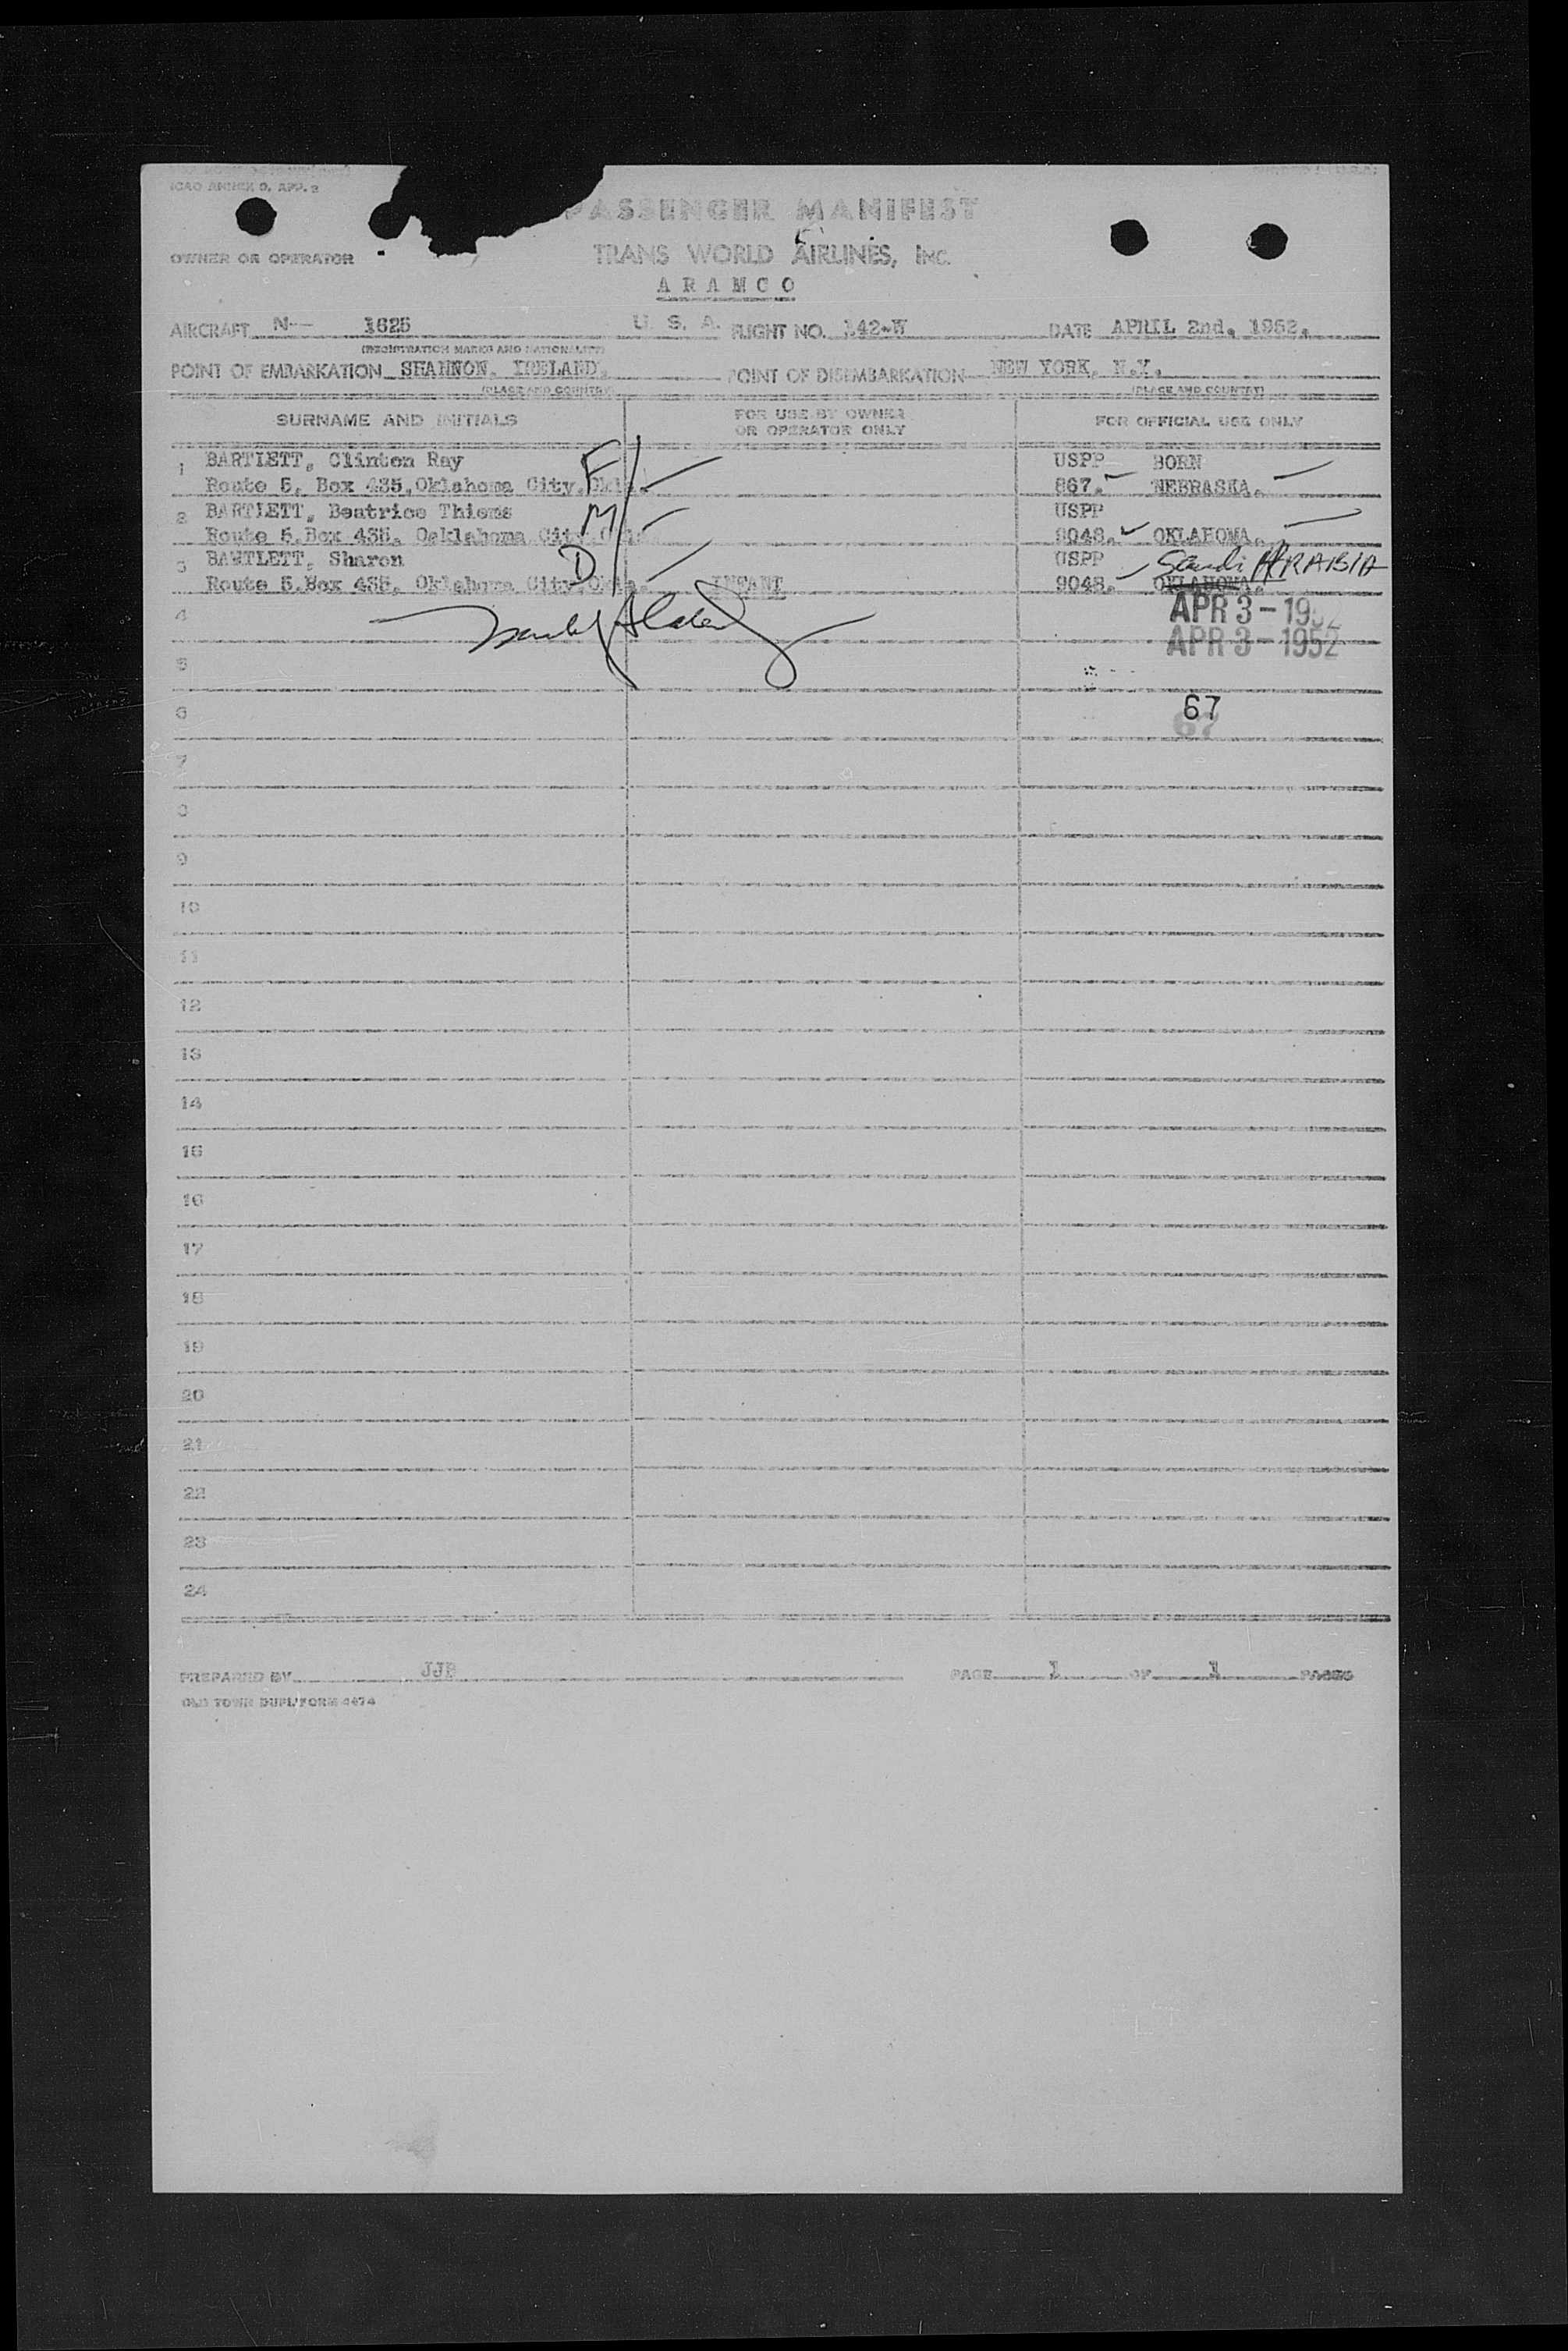 ICAO ANNEX 9, APP. 2
PASSENGER MANIFEST
OWNER OR OPERATOR TRANS WORLD AIRLINES, INC.
A R A M C O
AIRCRAFT N-- 1625 U. S. A. FLIGHT NO. 142-W DATE APRIL 2nd, 1952.
(REGISTRATION MARKS AND NATIONALITY)
POINT OF EMBARKATION SHANNON, IRELAND. POINT OF DISEMBARKATION NEW YORK, N.Y.
(PLACE AND COUNTRY) (PLACE AND COUNTRY)
SURNAME AND INITIALS FOR USE BY OWNER OR OPERATOR ONLY FOR OFFICIAL USE ONLY
1 BARTLETT, Clinton Ray F USPP BORN
Route 5, Box 435, Oklahoma City, Okla. 867. NEBRASKA.
2 BARTLETT, Beatrice Thiems M USPP
Route 5, Box 435, Oaklahoma City 9048. OKLAHOMA.
3 BARTLETT, Sharon D USPP Saudi ARABIA
Route 5, Box 435, Oklahoma City, Okla. INFANT 9048. OKLAHOMA.
4 APR 3 - 1952
APR 3 - 1952
5
6 67
67
7
8
9
10
11
12
13
14
15
16
17
18
19
20
21
22
23
24
PREPARED BY JJB PAGE 1 OF 1 PAGES
OLD TOWN DUPL/FORM 4474